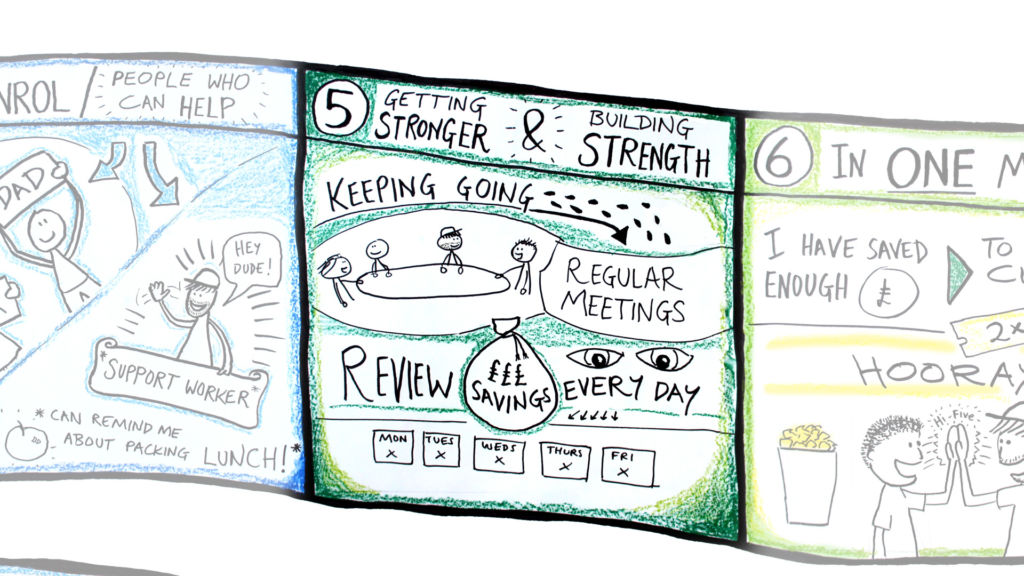 NROL / PEOPLE WHO
CAN HELP
DAD
HEY
DUDE!
*SUPPORT WORKER*
*CAN REMIND ME
ABOUT PACKING LUNCH!*
5 GETTING
STRONGER
&
BUILDING
STRENGTH
KEEPING GOING
REGULAR
MEETINGS
REVIEW
£££
SAVINGS
EVERY DAY
MON TUES WEDS THURS FRI
X X X X X
6 IN ONE M
I HAVE SAVED
ENOUGH £
TO
2x
HOORAY
Hi-Five!